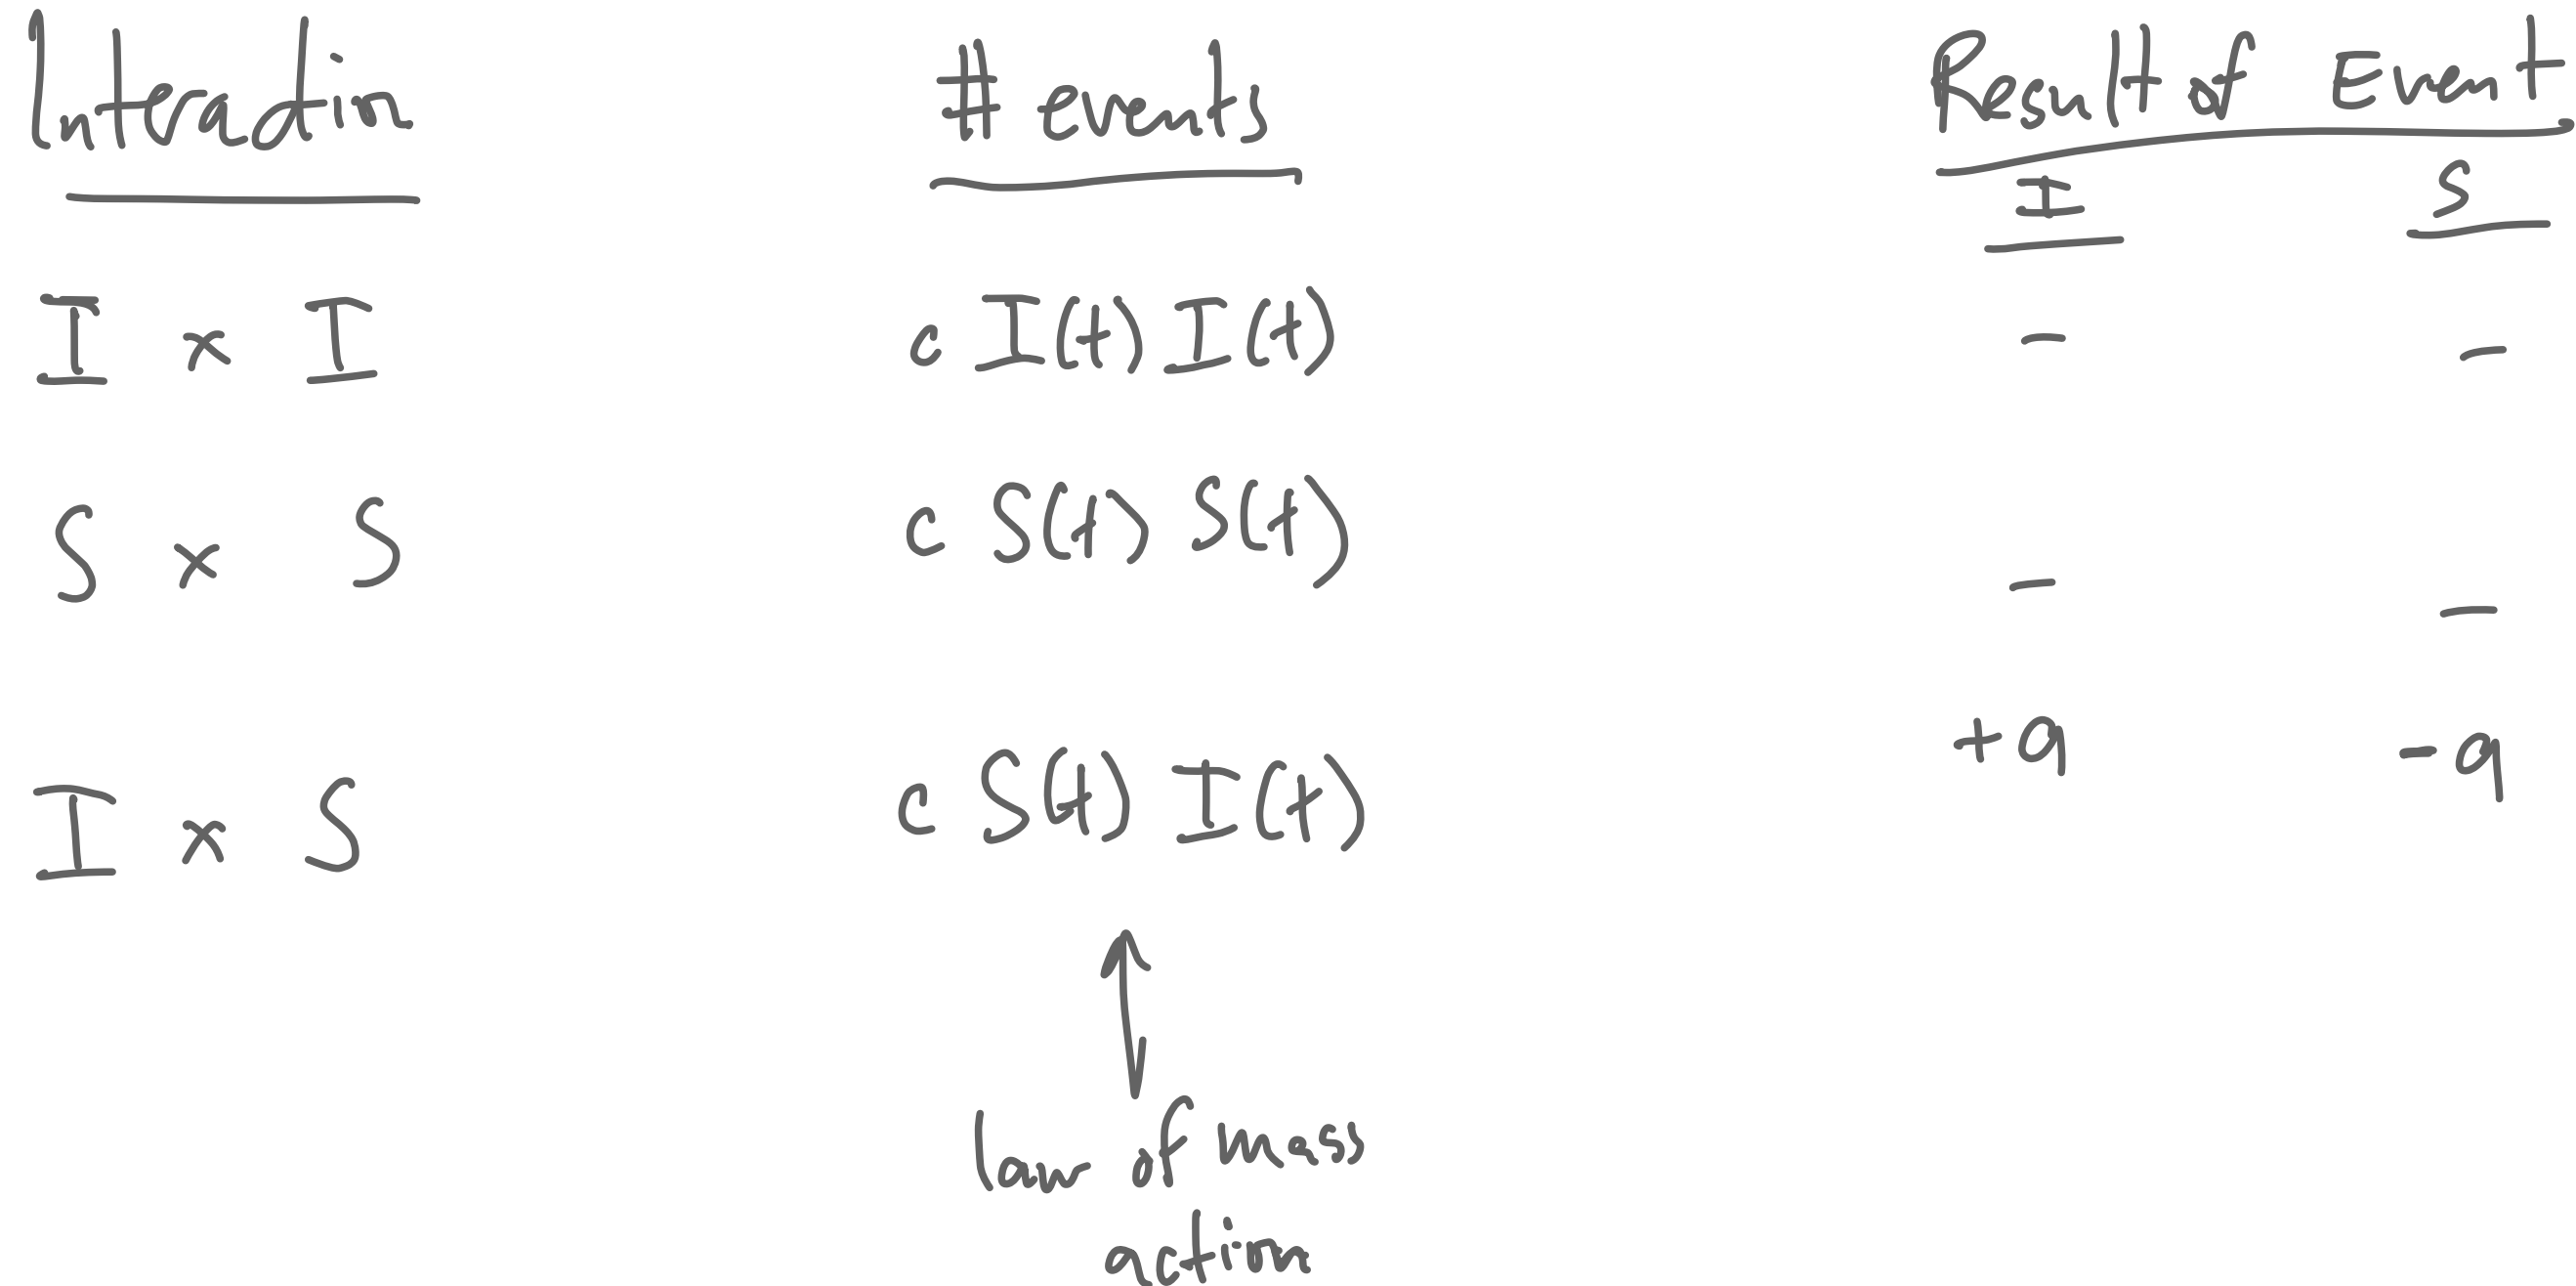 Interaction # events Result of Event
I S
I x I c I(t) I(t) - -
S x S c S(t) S(t) - -
I x S c S(t) I(t) +a -a
law of mass
action